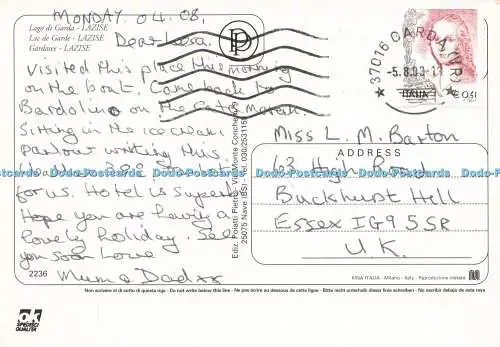 MONDAY 04.08.
Lago di Garda - LAZISE
Lac de Garde - LAZISE
Gardasee - LAZISE
Dear Lisa.
Visited this place this morning
on the boat. Came back to
Bardolino on the
Sitting in the ice cream
parlour writing this.
for us Hotel is superb
Hope you are having a
lovely holiday. See
you soon love
Mum & Dad xx
2236
P
Ediz. Poiatti Pietro - Via Monte Conche
25075 Nave (BS) - Tel. 030/2531156
37016 GARDA (VR)
-5.8.03-11
ITALIA
€ 0,41
Miss L. M. Barton
ADDRESS
63 High Road
Buckhurst Hill
Essex IG9 5SR
U.K.
KINA ITALIA - Milano - Italy - Riproduzione vietata
Non scrivere al di sotto di questa riga - Do not write below this line - Ne pas écrire au dessous de cette ligne - Bitte nicht unterhalb dieser Linie schreiben - No escribir debajo de esta raya
ok
SPECIFICI
QUALITÀ
Dodo-Postcards